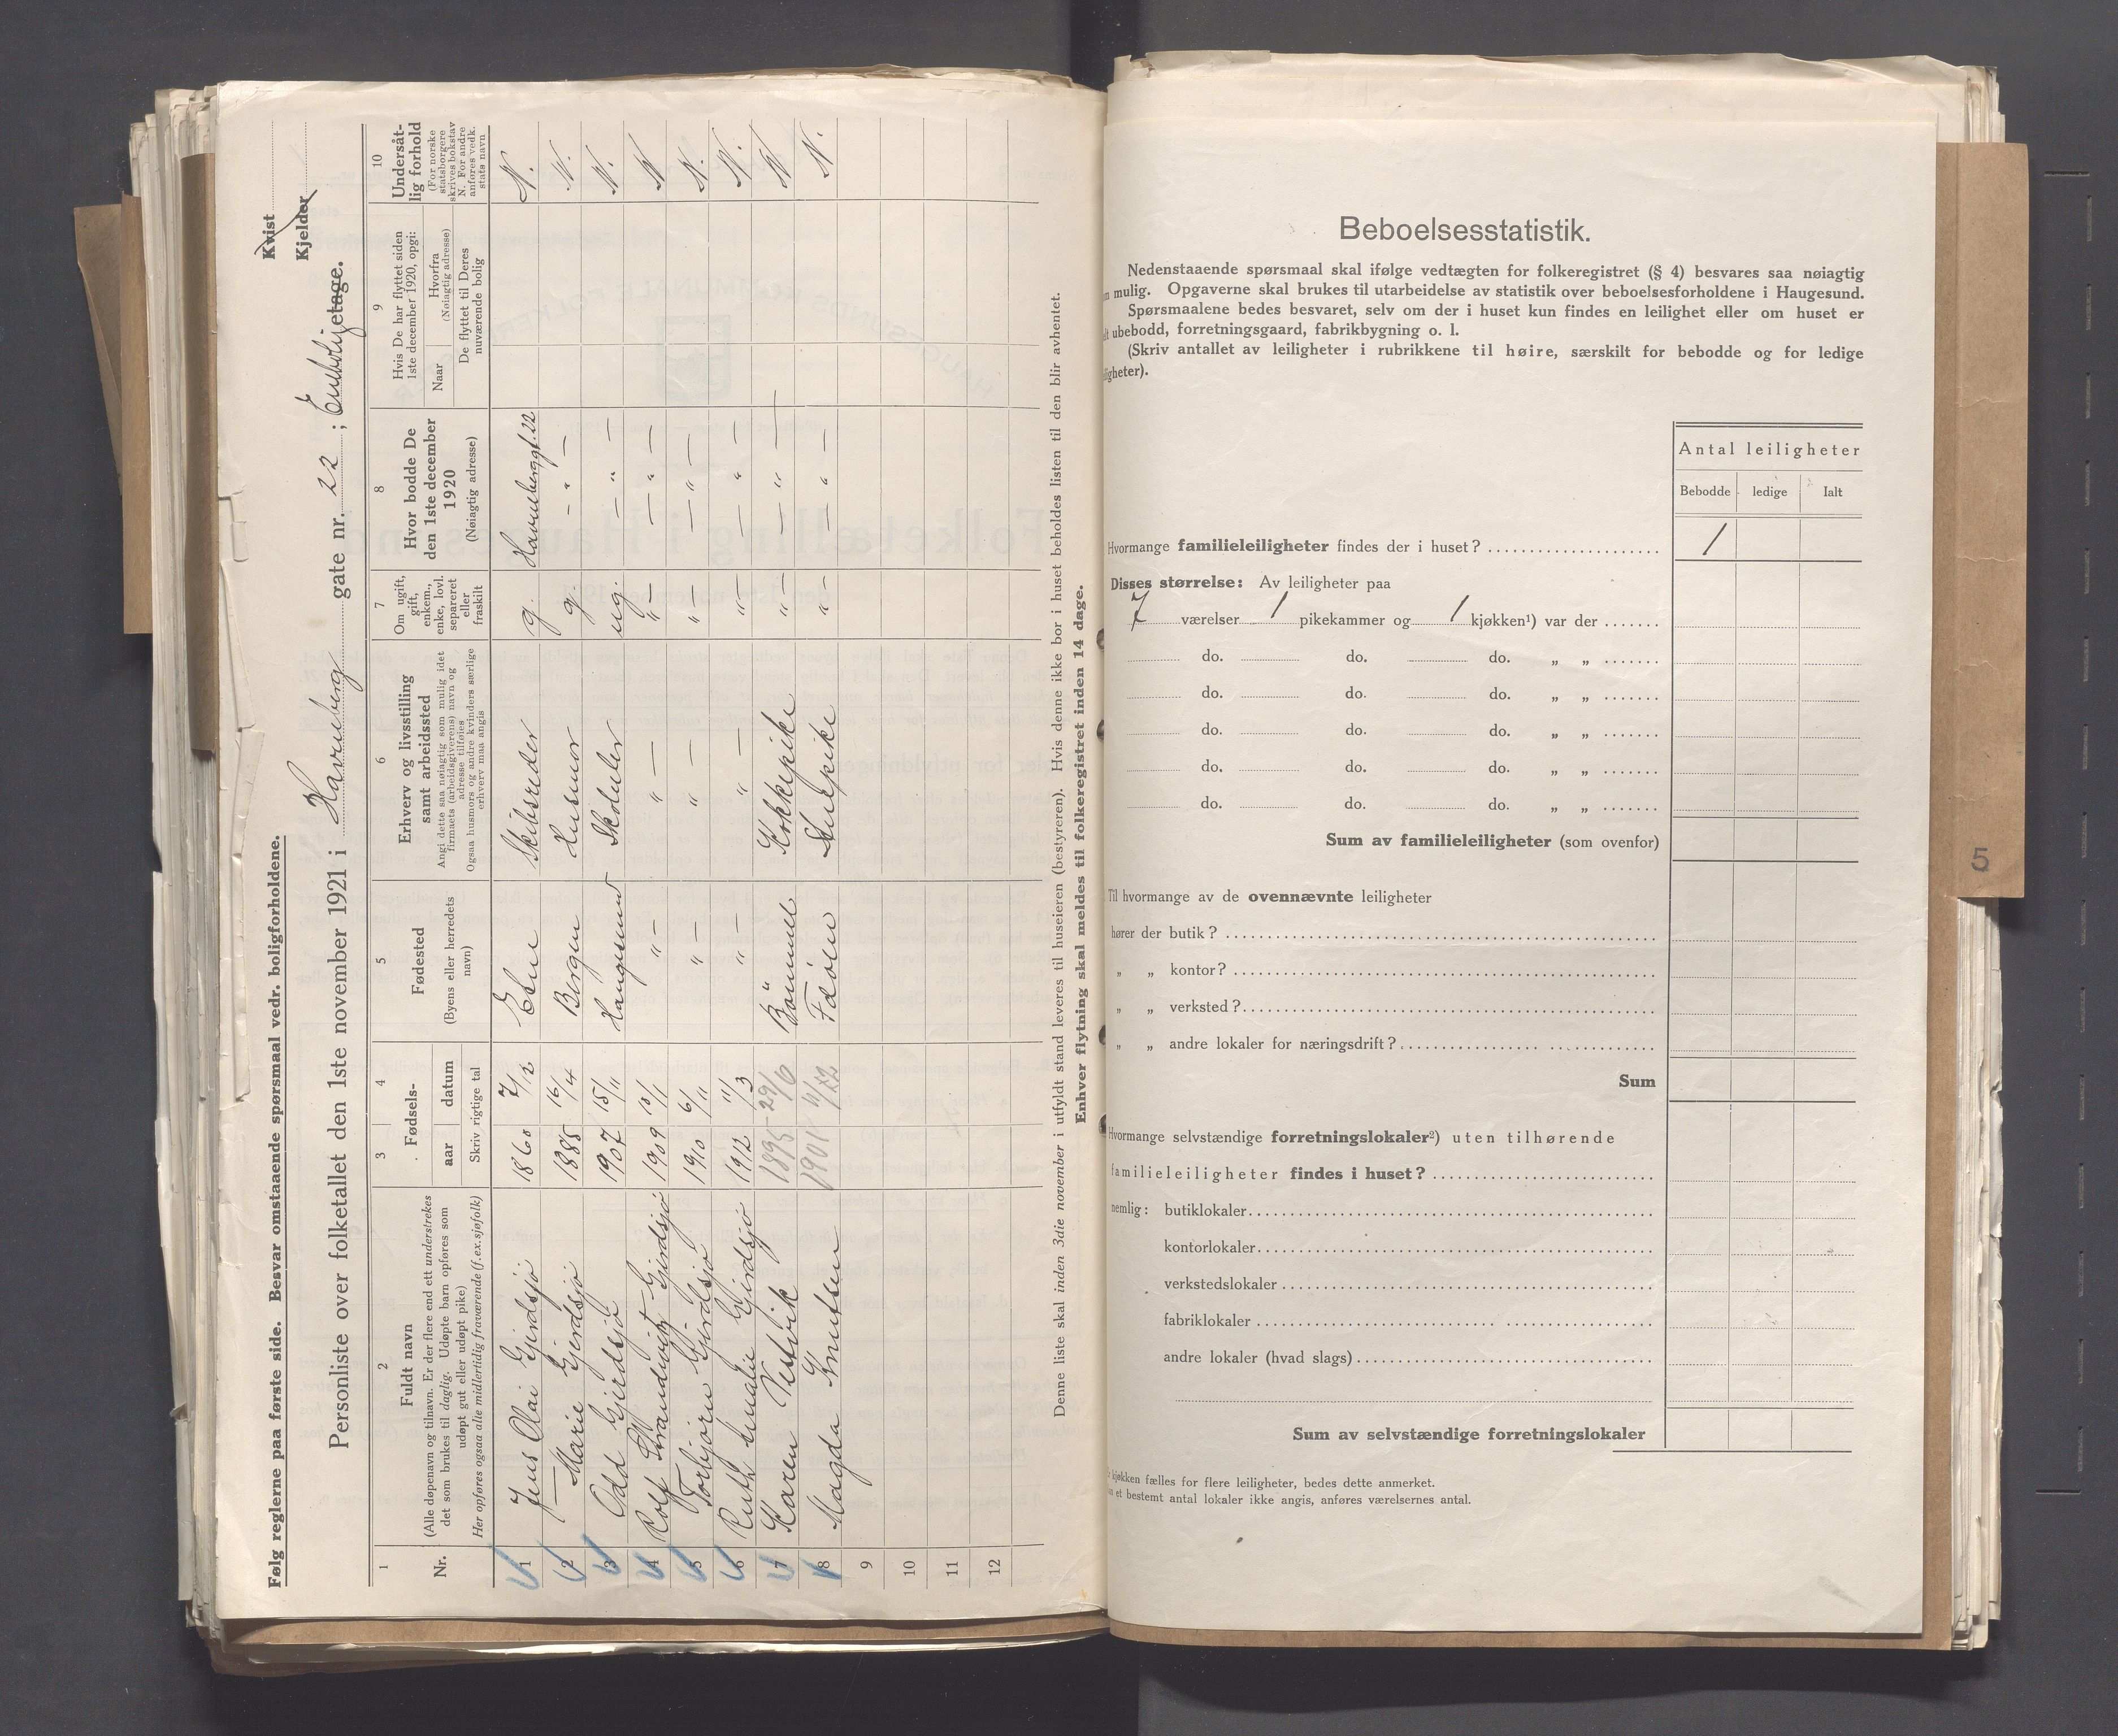 Følg reglerne paa første side. Besvar omstaaende spørsmaal vedr. boligforholdene.
Kvist
Kjelder
Personliste over folketallet den 1ste november 1921 i Havreberg gate nr. 22 ; Eneboligetage.
1 2 3 4 5 6 7 8 9 10
Nr.
Fuldt navn
(Alle døpenavn og tilnavn. Er der flere end ett understrekes
det som brukes til daglig. Udøpte barn opføres som
udøpt gut eller udøpt pike)
Her opføres ogsaa alle midlertidig fraværende (f.ex. sjøfolk)
Fødsels-
aar datum
Skriv rigtige tal
Fødested
(Byens eller herredets
navn)
Erhverv og livsstilling
samt arbeidssted
Angi dette saa nøiagtig som mulig idet
firmaets (arbeidsgiverens) navn og
adresse tilføies
Ogsaa husmors og andre kvinders særlige
erhverv maa angis
Om ugift,
gift,
enkem.,
enke, lovl.
separeret
eller
fraskilt
Hvor bodde De
den 1ste december
1920
(Nøiagtig adresse)
Hvis De har flyttet siden
1ste december 1920, opgi:
Naar
Hvorfra
(Nøiagtig adresse)
De flyttet til Deres
nuværende bolig
Undersåt-
lig forhold
(For norske
statsborgere
skrives bokstav
N. For andre
anføres vedk.
stats navn
1 Jens Olai Gjerdsjö 1860 7/12 Etne Skibsreder g. Havreberggt. 22 N.
2 — Marie Gjerdsjö 1885 16/4 Bergen Husmor g. – „ – N.
3 Odd Gjerdsjö 1907 15/11 Haugesund Skoleelev ug. – „ – N.
4 Rolf Gjerdsjö 1909 10/11 „ – „ – „ – – „ – N
5 Torbjörn Gjerdsjö 1910 6/11 „ – „ – „ – – „ – N.
6 Ruth Amalie Gjerdsjö 1912 11/3 „ – „ – „ – – „ – N.
7 Karen Vestvik 1895 29/6 Bömmel Kokkepike „ – – „ – N
8 Magda Knutsen 1901 Stuepike „ – – „ – N.
9
10
11
12
Denne liste skal inden 3die november i utfyldt stand leveres til huseieren (bestyreren). Hvis denne ikke bor i huset beholdes listen til den blir avhentet.
Enhver flytning skal meldes til folkeregistret inden 14 dage.
Beboelsesstatistik.
Nedenstaaende spørsmaal skal ifølge vedtægten for folkeregistret (§ 4) besvares saa nøiagtig
mulig. Opgaverne skal brukes til utarbeidelse av statistik over beboelsesforholdene i Haugesund.
Spørsmaalene bedes besvaret, selv om der i huset kun findes en leilighet eller om huset er
ubebodd, forretningsgaard, fabrikbygning o. l.
(Skriv antallet av leiligheter i rubrikkene til høire, særskilt for bebodde og for ledige
ligheter).
Antal leiligheter
Bebodde ledige Ialt
Hvormange familieleiligheter findes der i huset? 1
Disses størrelse: Av leiligheter paa
7 værelser 1 pikekammer og 1 kjøkken¹) var der
do. do. do. „ „
do. do. do. „ „
do. do. do. „ „
do. do. do. „ „
do. do. do. „ „
Sum av familieleiligheter (som ovenfor)
Til hvormange av de ovennævnte leiligheter
hører der butik?
„ „ kontor?
„ „ verksted?
„ „ andre lokaler for næringsdrift?
Sum
Hvormange selvstændige forretningslokaler²) uten tilhørende
familieleiligheter findes i huset?
nemlig: butiklokaler
kontorlokaler
verkstedslokaler
fabriklokaler
andre lokaler (hvad slags)
Sum av selvstændige forretningslokaler
kjøkken fælles for flere leiligheter, bedes dette anmerket.
et bestemt antal lokaler ikke angis, anføres værelsernes antal.
5